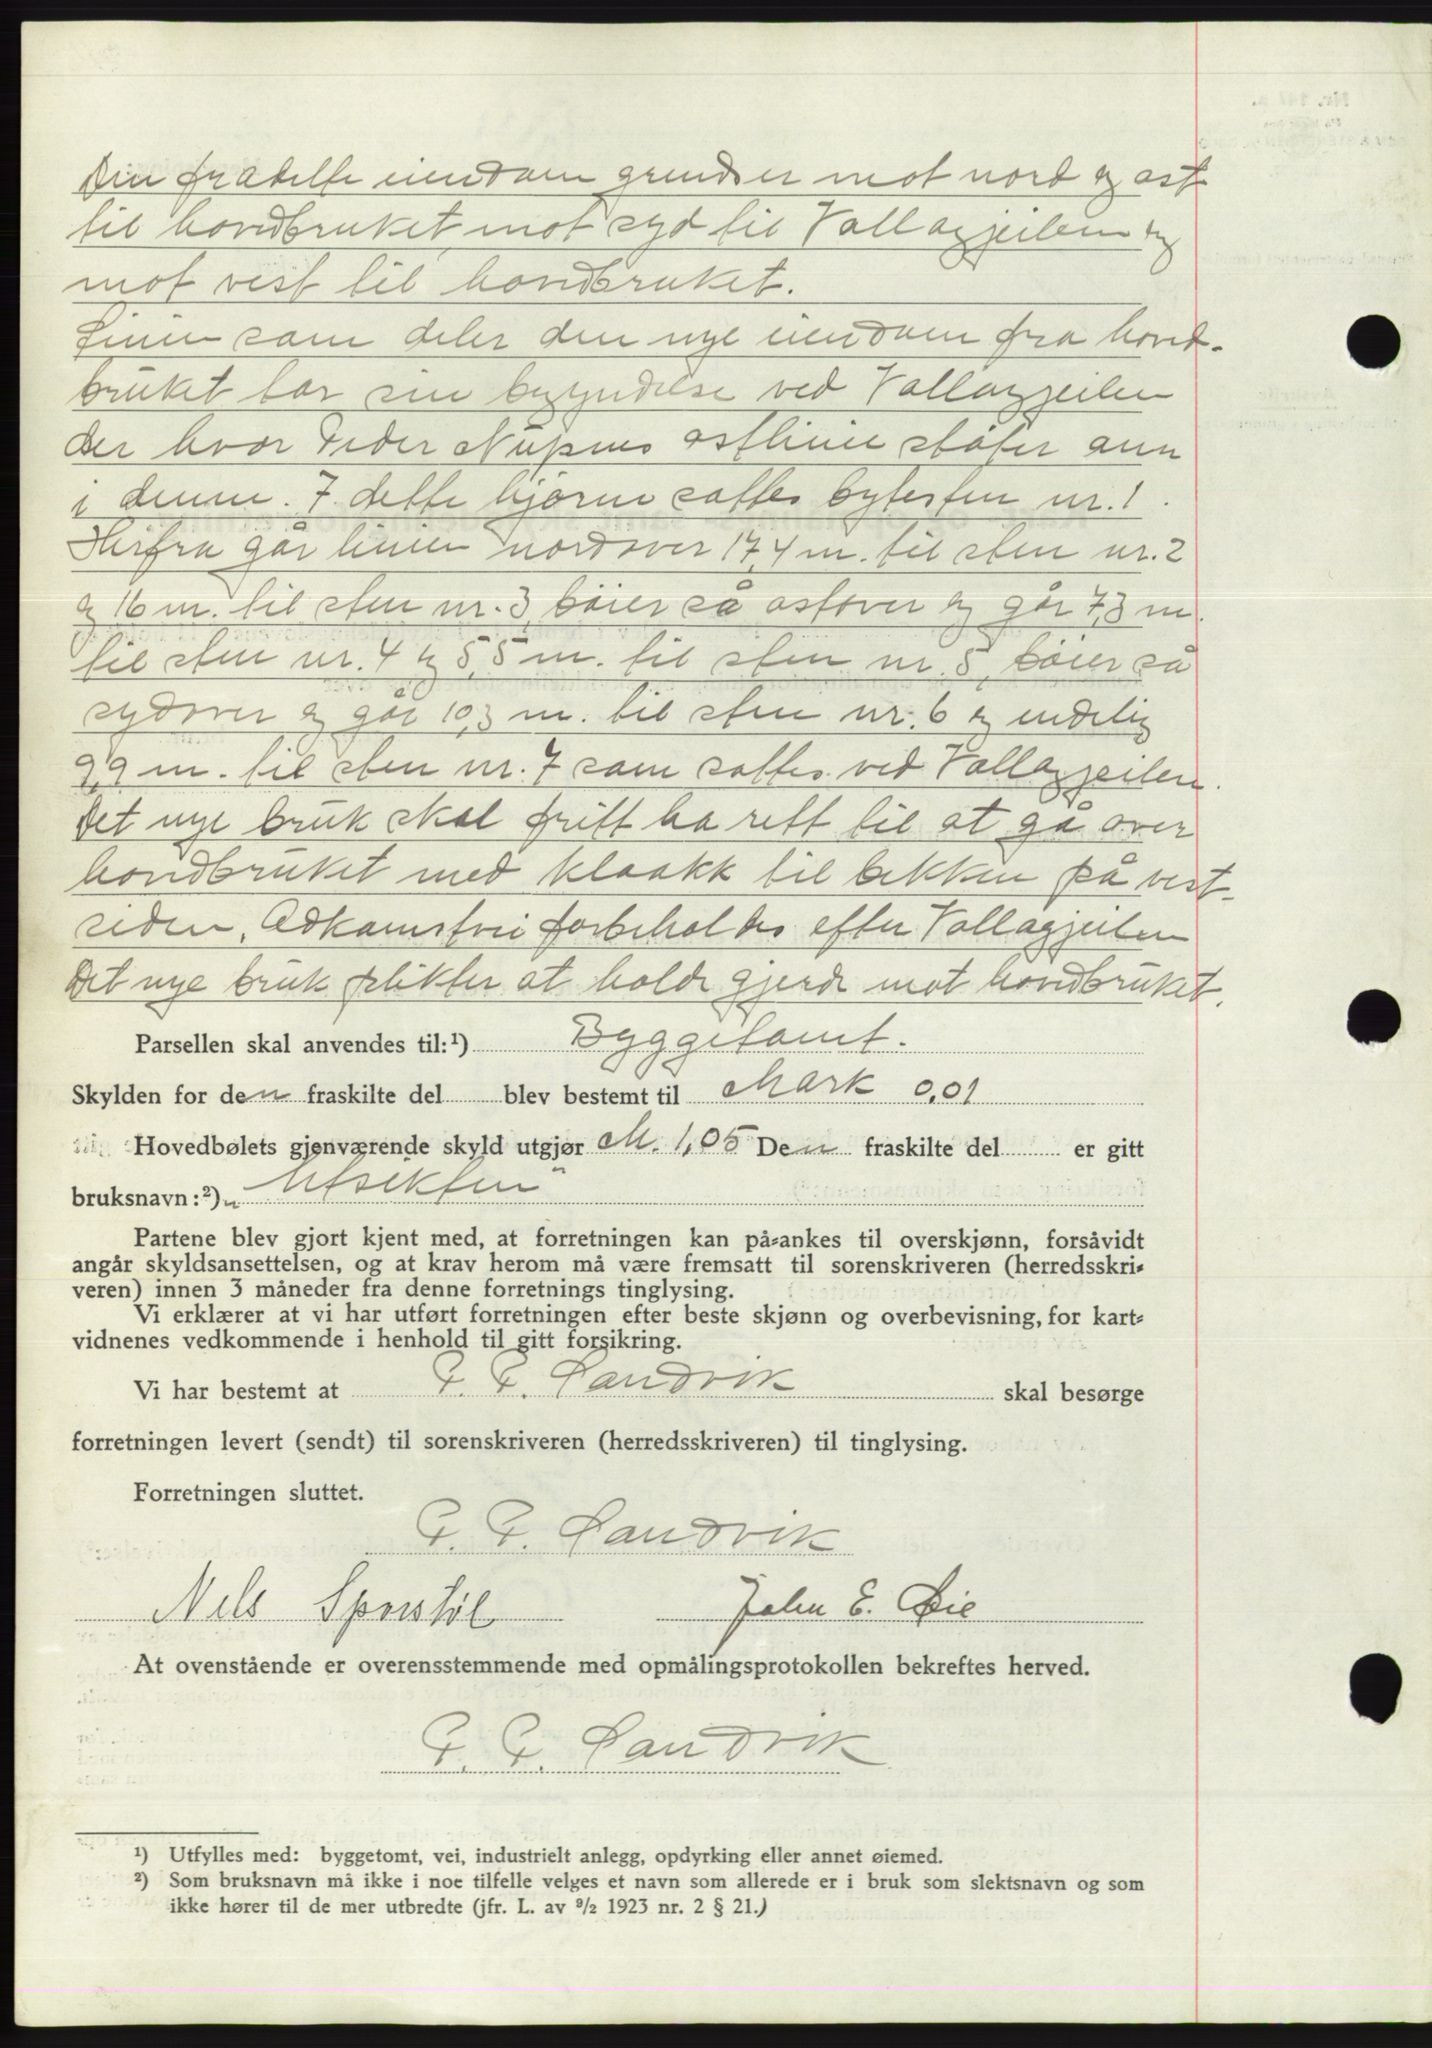 Den fradelte eiendom grendser mot nord og ost
til hovedbruket, mot syd til Vallagjeilen og
mot vest til hovedbruket.
Linien som deler den nye eiendom fra hoved-
bruket tar sin begyndelse ved Vallagjeilen
der hvor Peder Nupens ostlinie støter ann
i denne. I dette hjørne sattes bytesten nr. 1.
Herfra går linien nordover 17,4 m. til sten nr. 2
og 16 m. til sten nr. 3, bøier så ostover og går 7,3 m.
til sten nr. 4 og 5,5 m. til sten nr. 5, bøier så
sydover og går 10,3 m. til sten nr. 6 og endelig
9,9 m. til sten nr. 7 som sattes ved Vallagjeilen.
Det nye bruk skal fritt ha rett til at gå over
hovedbruket med kloakk til bekken på vest-
siden. Adkomstvei forbeholdes efter Vallagjeilen
Det nye bruk plikter at holde gjerde mot hovedbruket.
Parsellen skal anvendes til:¹) Byggetomt.
Skylden for den fraskilte del blev bestemt til Mark 0,01
Hovedbølets gjenværende skyld utgjør M. 1,05 Den fraskilte del er gitt
bruksnavn:²) „Utsikten"
Partene blev gjort kjent med, at forretningen kan på-ankes til overskjønn, forsåvidt
angår skyldsansettelsen, og at krav herom må være fremsatt til sorenskriveren (herredsskri-
veren) innen 3 måneder fra denne forretnings tinglysing.
Vi erklærer at vi har utført forretningen efter beste skjønn og overbevisning, for kart-
vidnenes vedkommende i henhold til gitt forsikring.
Vi har bestemt at P. P. Sandvik skal besørge
forretningen levert (sendt) til sorenskriveren (herredsskriveren) til tinglysing.
Forretningen sluttet.
P. P. Sandvik
Nels Sporstøl John E. Øie
At ovenstående er overensstemmende med opmålingsprotokollen bekreftes herved.
P. P. Sandvik
¹) Utfylles med: byggetomt, vei, industrielt anlegg, opdyrking eller annet øiemed.
²) Som bruksnavn må ikke i noe tilfelle velges et navn som allerede er i bruk som slektsnavn og som
ikke hører til de mer utbredte (jfr. L. av 9/2 1923 nr. 2 § 21.)